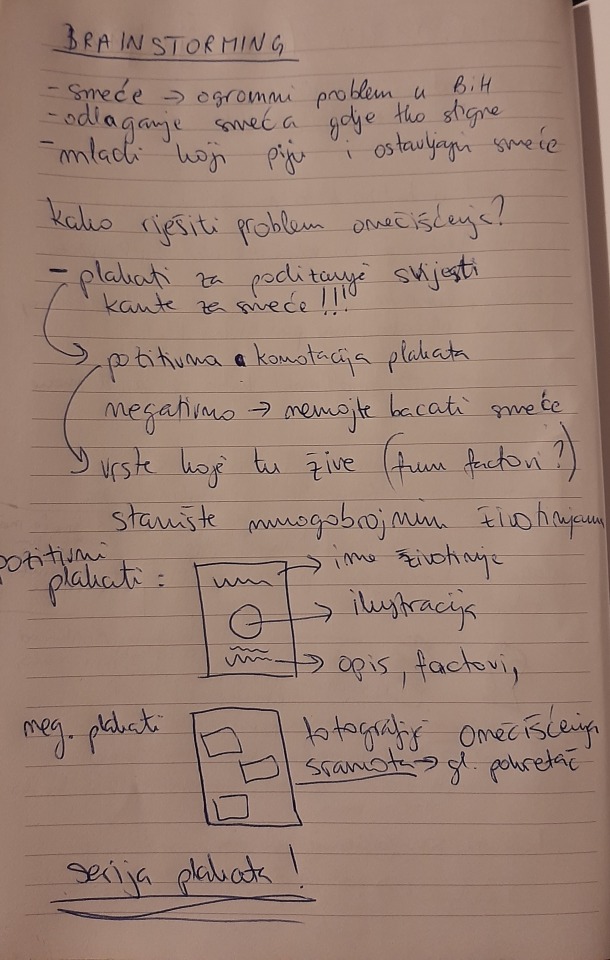 BRAINSTORMING
- smeće → ogromni problem u BiH
- odlaganje smeća gdje tko stigne
- mladi koji piju i ostavljaju smeće
kako riješiti problem onečišćenja?
- plakati za podizanje svijesti
kante za smeće!!!
pozitivna konotacija plakata
negativno → nemojte bacati smeće
vrste koje tu žive (fun factovi?)
stanište mnogobrojnim životinjama
pozitivni
plakati:
ime životinje
ilustracija
opis, factovi,
neg. plakati
fotografije onečišćenja
sramota → gl. pokretač
serija plakata!